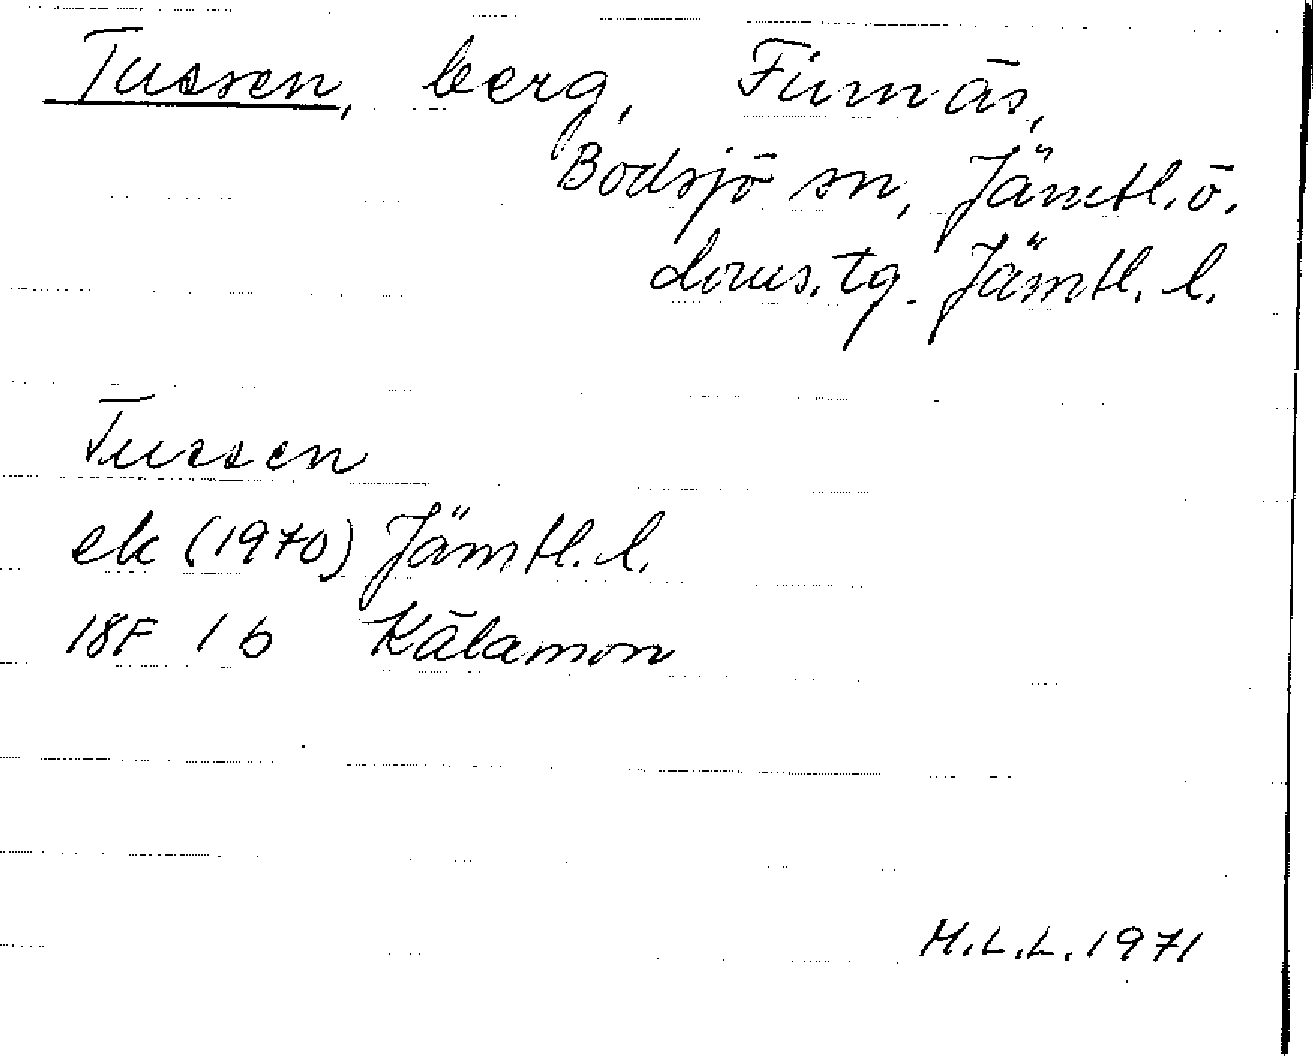 Tussen, berg, Finnäs,
Bodsjö sn, Jämtl. ö.
doms. tg. Jämtl. l.
Tussen
ek (1970) Jämtl. l.
18F 1 b Kälamon
M.L.L. 1971